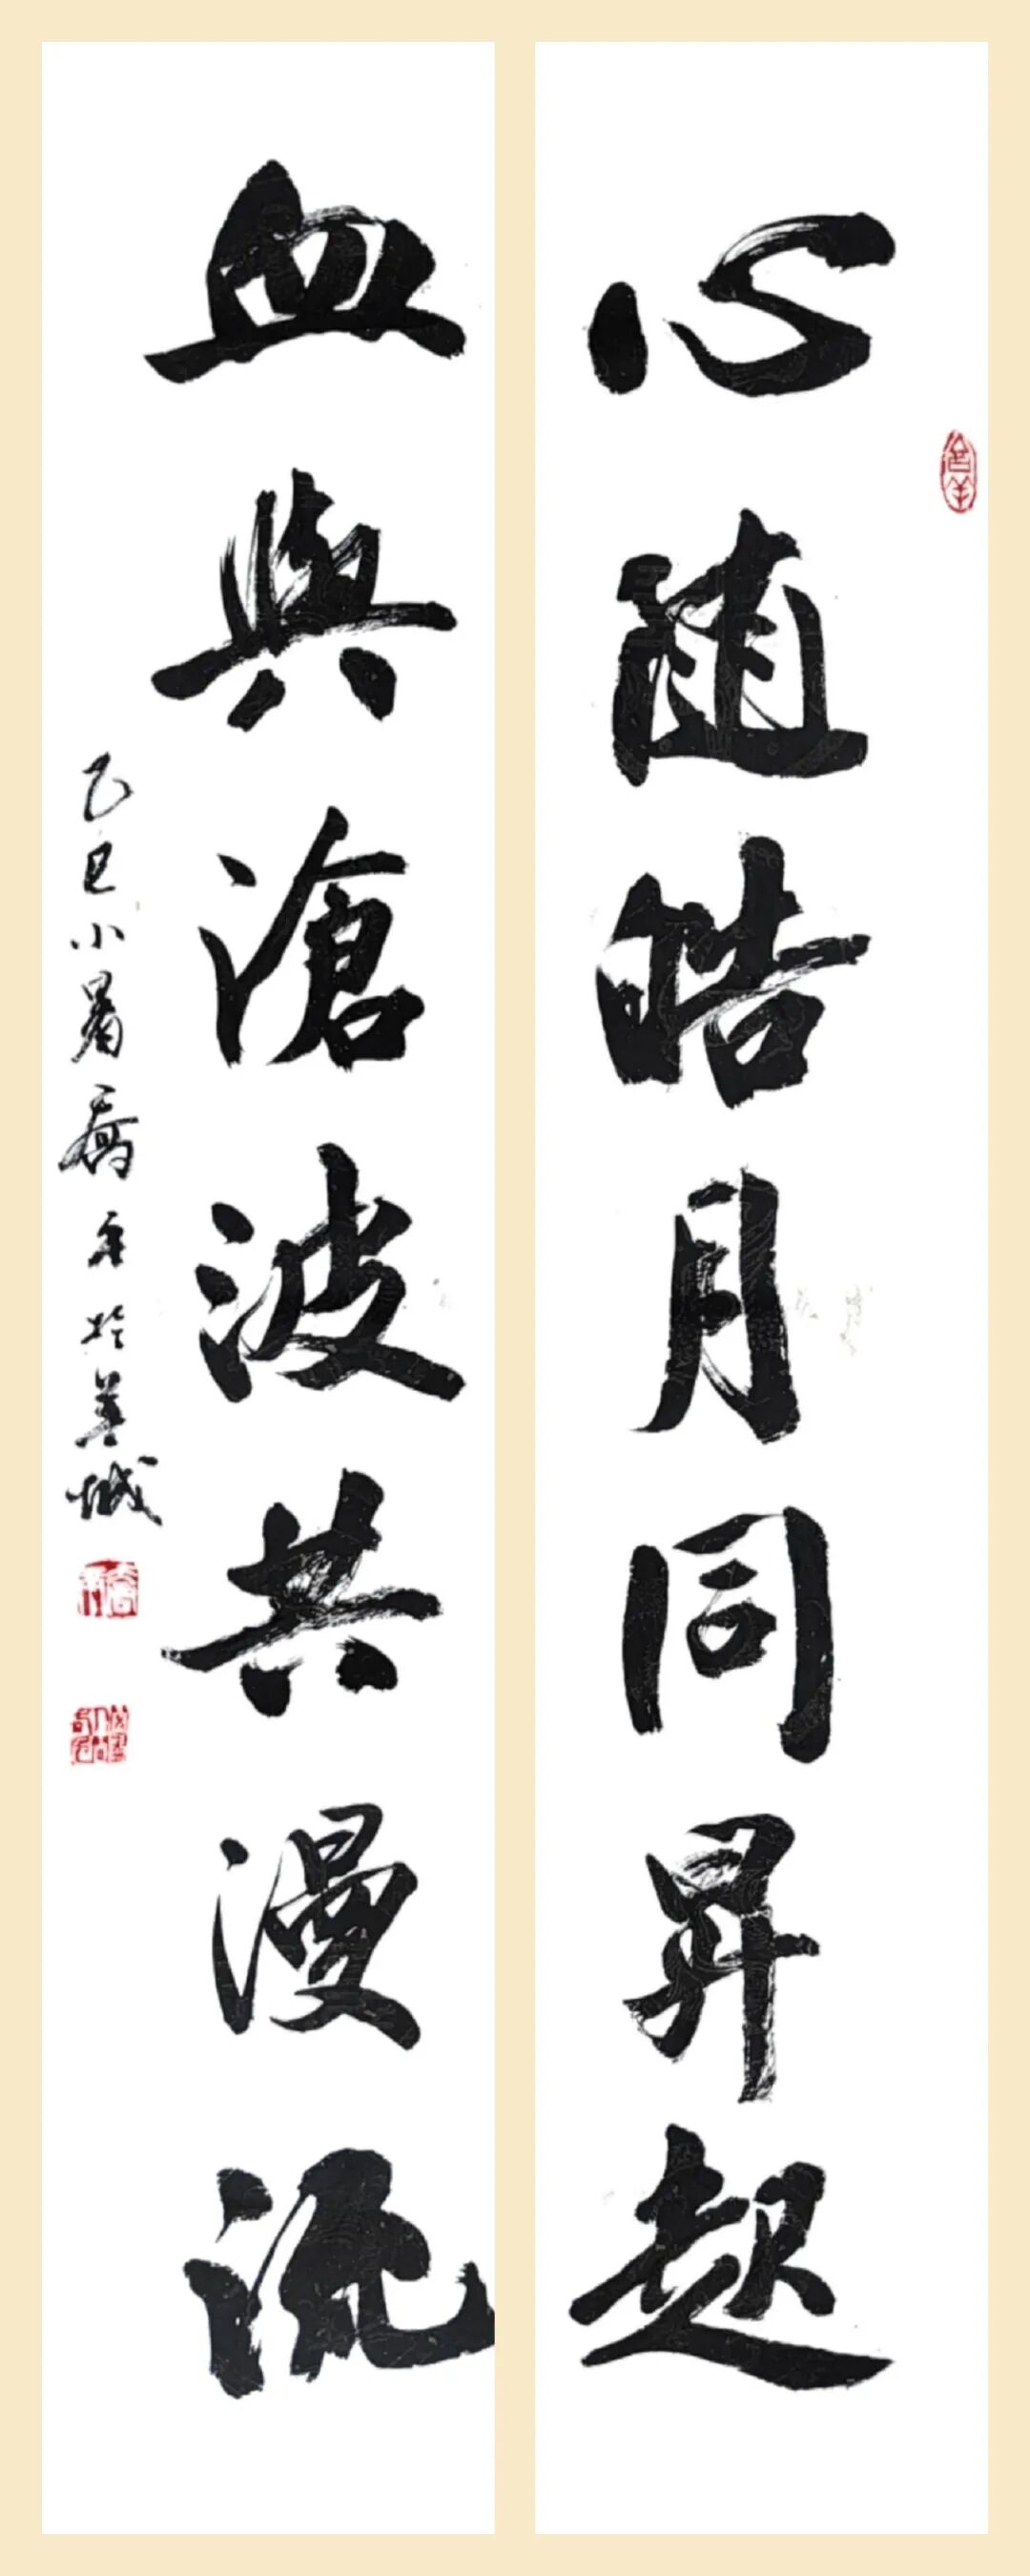 心随皓月同昇起
血與滄波共漫流
乙巳小暑喬年於羊城